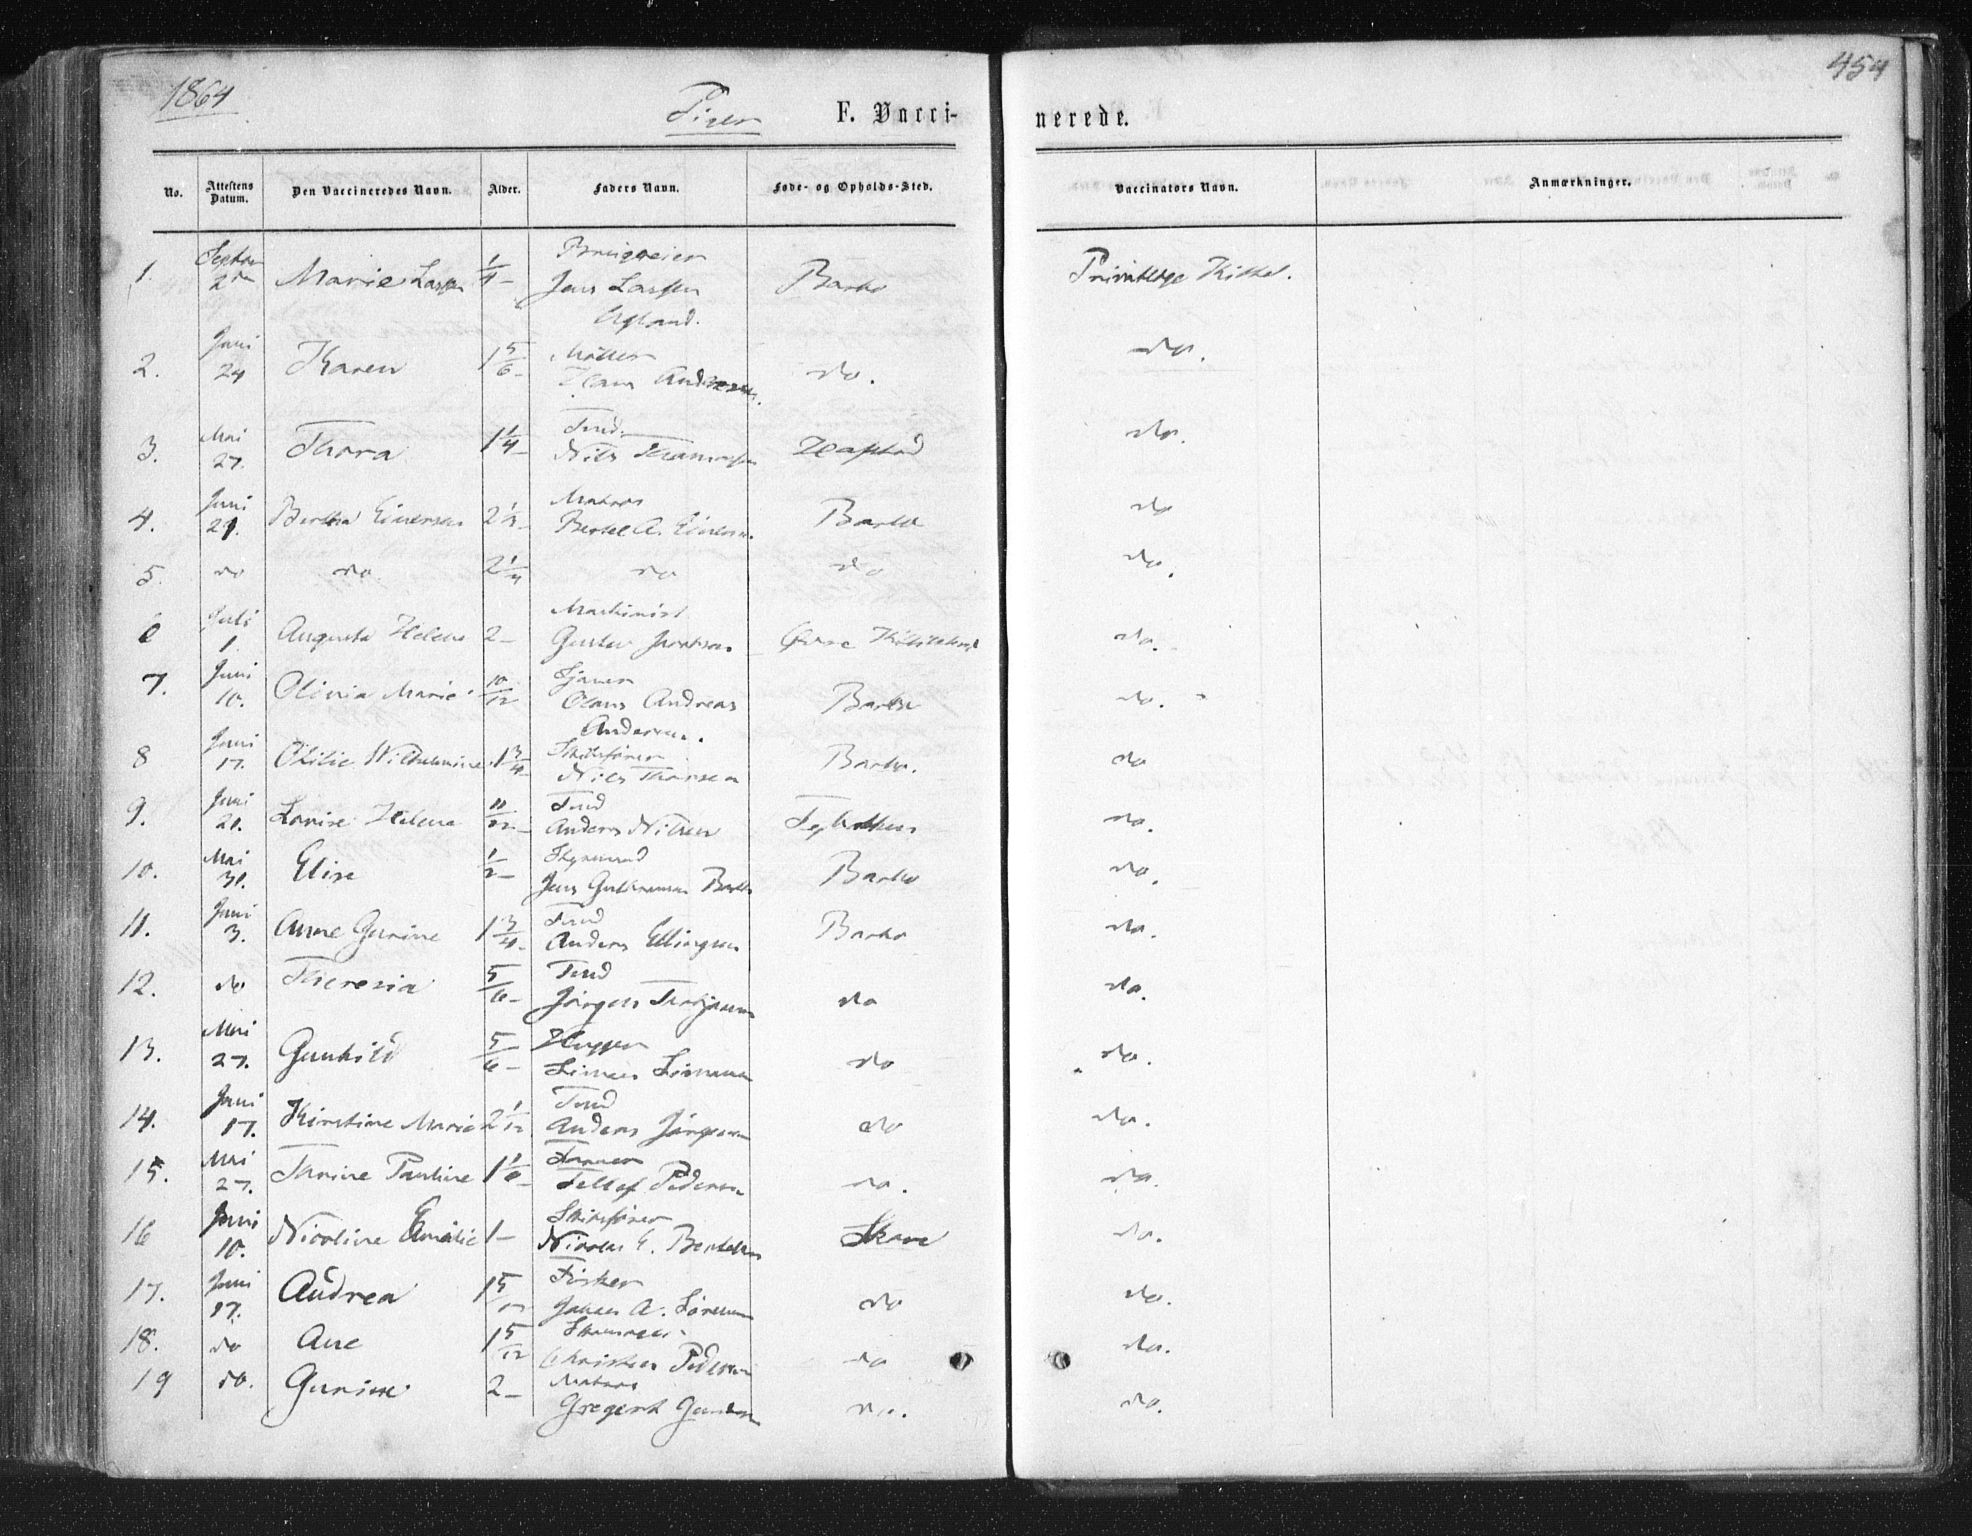 1864
454
Piger
F. Vaccinerede.
No. Attestens Datum. Den Vaccineredes Navn. Alder. Faders Navn. Føde- og Opholds-Sted. Vaccinators Navn. Anmærkninger.
1. Septbr 2den Marie Larsen 1/4 - Jens Larsen Barbo Privatlæge Kittel.
2. Juni 24 Karen 1 5/6 - Møller Hans Andersen. do. do.
3. Mai 27. Thora 1 1/4 - Tmd. Nils do.
4. Juni 21. Bertha Einersen 2 1/4 - Matros Bertel A. Einersen. Barbo do
5. do do 2 1/4 do do do.
6 Juli 1. Augusta Helene 2 - Maskinist Gustav do.
7. Juni 10. Olivia Marie 10/12 Olaus Andreas Andersen. Barbo do.
8 Juni 17. Otilie Wilhelmine 1 3/4 - Skibsfører Nils Thorsen Barbo. do
9. Juni 21. Lovise Helene 11/12 - Tmd Anders Nilsen do.
10. Mai 31. Elise 1/2 - Jens Barbo do.
11. Juni 3. Anne Gurine 1 3/4 - Tmd Anders Ellingsen Barbo do.
12. do Theresia 5/6 - Tmd Jörgen do do.
13. Mai 27. Gunhild 5/6 - Simen Simensen do do.
14. Juni 17. Kirstine Marie 2 1/12 Tmd Anders Jörgensen do do.
15. Mai 27. Thrine Pauline 1 1/6 - Tellef Pedersen do. do.
16 Juni 10. Nicoline Emilie 1 - Skibsfører Nicolai E. Bertelsen do.
17. Juni 17. Andrea 1 5/12 Fisker A. Sörensen do do.
18. do Ane 1 5/12 Christen Pedersen do do.
19 do. Gurine 2 - Matros Gregert do. do.